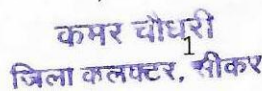 कमर चौधरी
1
जिला कलक्टर, सीकर